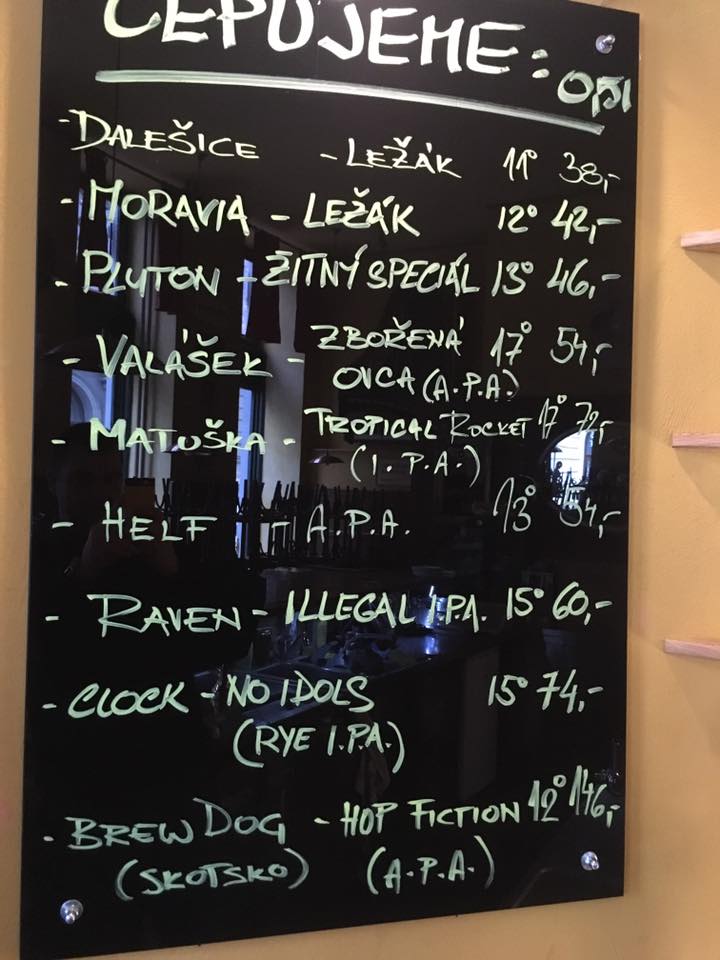 ČEPUJEME: 0,5l
- DALEŠICE - LEŽÁK 11° 38,-
- MORAVIA - LEŽÁK 12° 42,-
- PLUTON - ŽITNÝ SPECIÁL 13° 46,-
- VALÁŠEK - ZBOŘENÁ 17° 54,-
OVCA (A.P.A)
- MATUŠKA - TROPICAL ROCKET 17° 72,-
(I.P.A.)
- HELF - A.P.A. 13° 54,-
- RAVEN - ILLEGAL I.P.A. 15° 60,-
- CLOCK - NO IDOLS 15° 74,-
(RYE I.P.A.)
- BREWDOG - HOP FICTION 12° 146,-
(SKOTSKO) (A.P.A.)